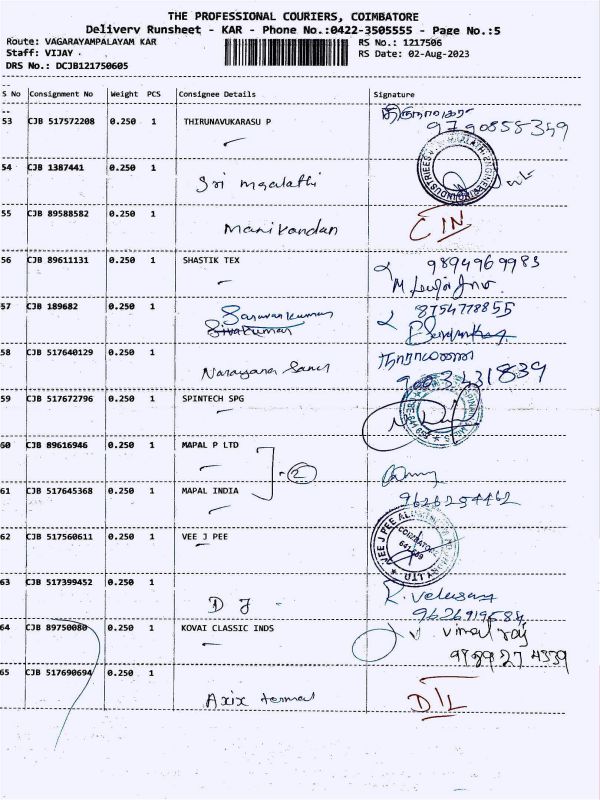 THE PROFESSIONAL COURIERS, COIMBATORE
Delivery Runsheet - KAR - Phone No.:0422-3505555 - Page No.:5
Route: VAGARAYAMPALAYAM KAR RS No.: 1217506
Staff: VIJAY . RS Date: 02-Aug-2023
DRS No.: DCJB121750605
S No Consignment No Weight PCS Consignee Details Signature
53 CJB 517572208 0.250 1 THIRUNAVUKARASU P
9790858359
54 CJB 1387441 0.250 1
Sri Magalathi
55 CJB 89588582 0.250 1
Manikandan CIN
56 CJB 89611131 0.250 1 SHASTIK TEX 9894969983
57 CJB 189682 0.250 1 Saravankumar 8754778855
Sivakumar
58 CJB 517640129 0.250 1 நாராயணன்
Narayana
59 CJB 517672796 0.250 1 SPINTECH SPG
60 CJB 89616946 0.250 1 MAPAL P LTD
2
61 CJB 517645368 0.250 1 MAPAL INDIA 9626254462
62 CJB 517560611 0.250 1 VEE J PEE
VEE J PEE
COIMBATORE
63 CJB 517399452 0.250 1
D J R. Velusamy
64 CJB 89750080 0.250 1 KOVAI CLASSIC INDS Vimal raj
65 CJB 517690694 0.250 1
Axix termal DIL